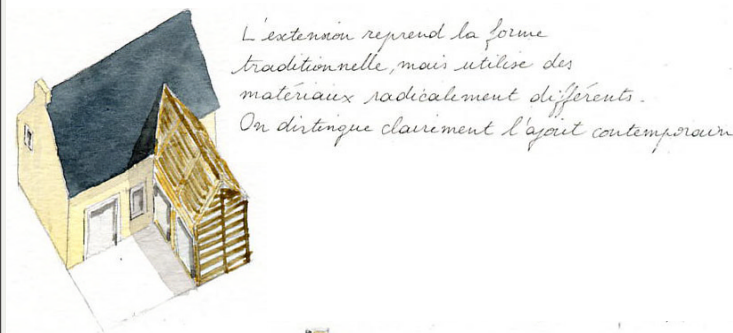 L'extension reprend la forme
traditionnelle, mais utilise des
matériaux radicalement différents.
On distingue clairement l'ajout contemporain